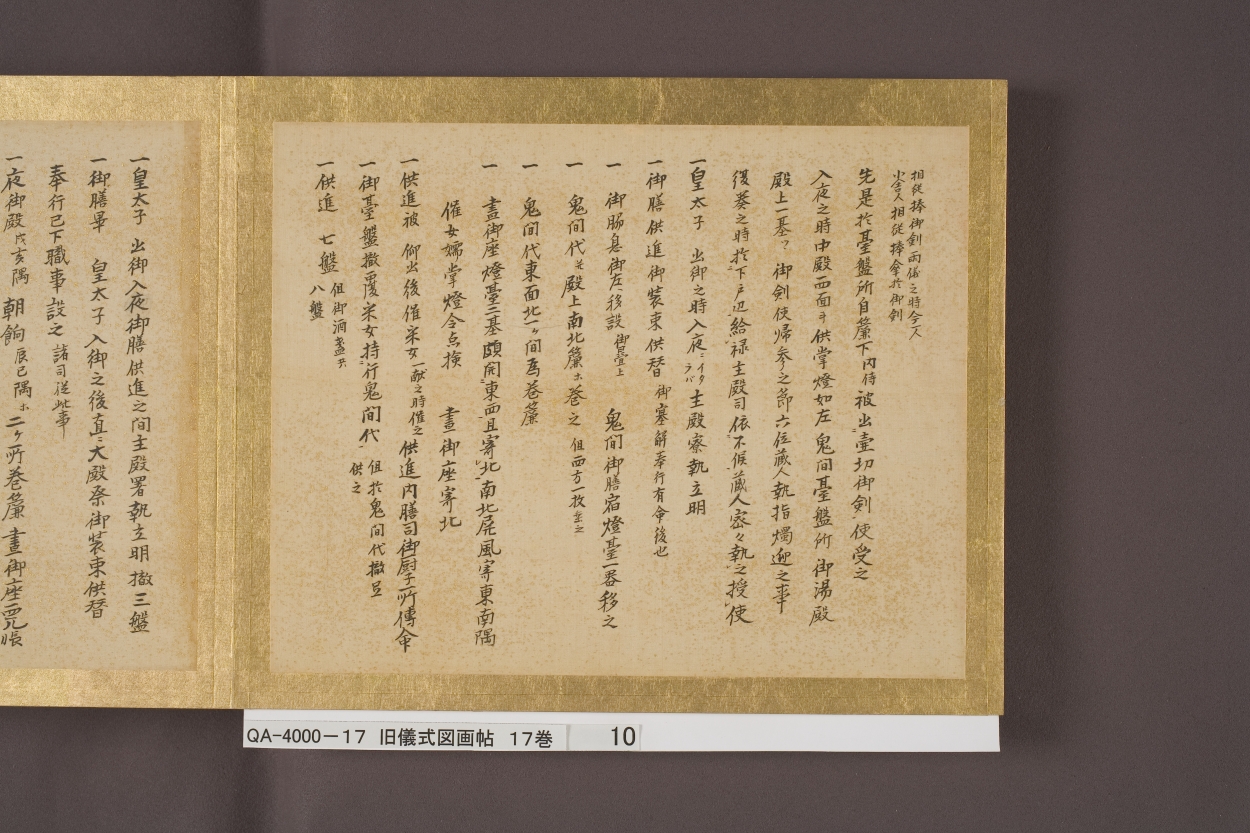 相従捧御剣両儀之時今一人
少舎人相従捧傘於御剣
先是於臺盤所自簾下内侍被出壷切御剣使受之
入夜之時中殿西面ヨリ供掌燈如左鬼間臺盤所御湯殿
殿上一基御剣使帰参之節六位蔵人執指燭迎之畢
後奏之時於下戸辺給禄主殿司依不候蔵人密々執之授使
一皇太子出御之時入夜ニイタラバ主殿寮執立明
一御膳供進御装束供替御塞解奉行有命後也
一御脇息御左移設御畳上鬼間御膳宿燈臺一番移之
一鬼間代並殿上南北簾ホ巻之但西方一枚垂之
一鬼間代東面北一ヶ間為巻簾
一晝御座燈臺二基頗開東西且寄北南北屏風寄東南隅
催女嬬掌燈令点検晝御座寄北
一供進被仰出後催采女一献之時催之供進内膳司御厨子所傳命
一御臺盤撤覆采女持行鬼間代但於鬼間代撤豆供之
一供進七盤八盤但御酒盞共
一皇太子出御入夜御膳供進之間主殿署執立明撤三盤
一御膳畢皇太子入御之後直ニ大殿祭御装束供替
奉行已下職事設之諸司従此事
一夜御殿戌亥隅朝餉辰巳隅ホ二ヶ所巻簾晝御座几帳
QA-4000-17 旧儀式図画帖 17巻 10